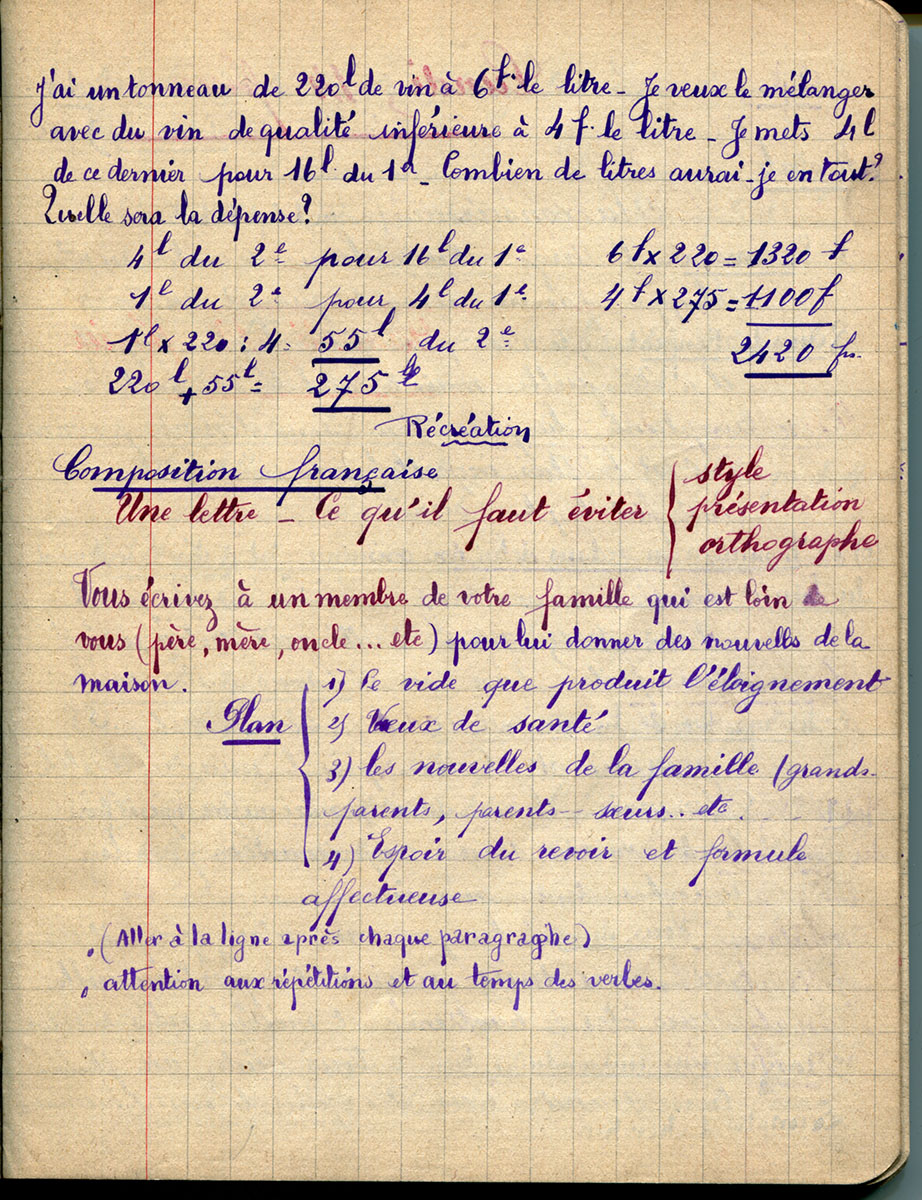 J'ai un tonneau de 220l de vin à 6f. le litre - Je veux le mélanger
avec du vin de qualité inférieure à 4f. le litre - Je mets 4l
de ce dernier pour 16l. du 1er - Combien de litres aurai-je en tout?
Quelle sera la dépense?
4l du 2e pour 16l du 1e
1l du 2e pour 4l du 1e
1l x 220 : 4 = 55l du 2e
220l + 55l = 275l
6f x 220 = 1320f
4f x 275 = 1100f
2420 frs.
Récréation
Composition française
Une lettre - Ce qu'il faut éviter { style
présentation
orthographe
Vous écrivez à un membre de votre famille qui est loin de
vous (père, mère, oncle... etc) pour lui donner des nouvelles de la
maison.
Plan { 1) Le vide que produit l'éloignement
2) Vœux de santé
3) les nouvelles de la famille (grands-
parents, parents - sœurs.. etc.
4) Espoir du revoir et formule
affectueuse
. (Aller à la ligne après chaque paragraphe)
. attention aux répétitions et au temps des verbes.